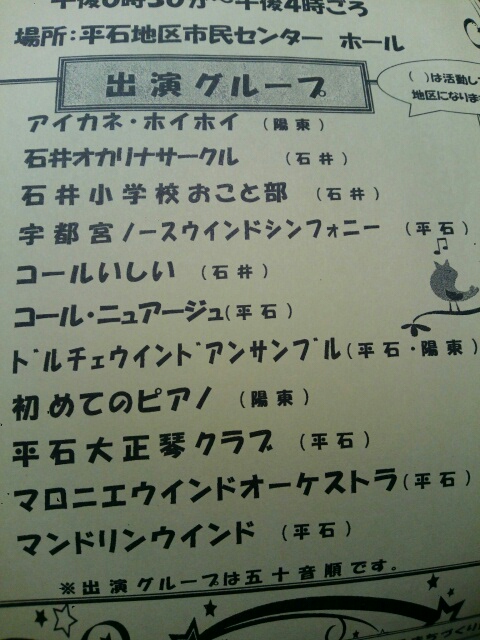 午後0時30分～午後4時ごろ
場所:平石地区市民センター ホール
出演グループ
( )は活動し
地区になりま
アイカネ・ホイホイ (陽東)
石井オカリナサークル (石井)
石井小学校おこと部 (石井)
宇都宮ノースウインドシンフォニー (平石)
コールいしい (石井)
コール・ニュアージュ(平石)
ドルチェウインドアンサンブル(平石・陽東)
初めてのピアノ (陽東)
平石大正琴クラブ (平石)
マロニエウインドオーケストラ(平石)
マンドリンウインド (平石)
※出演グループは五十音順です。